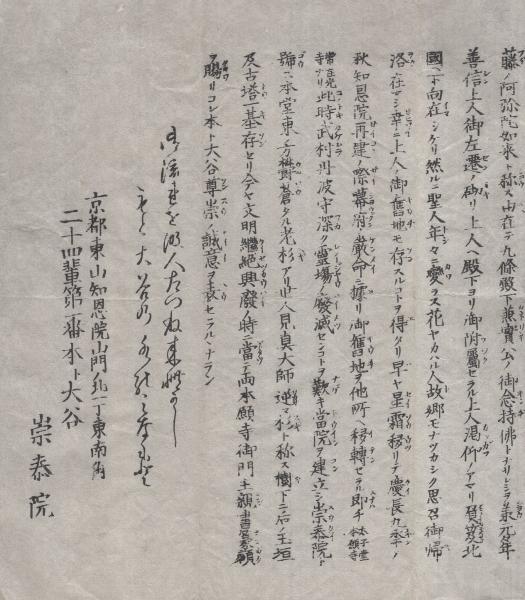 藤ノ阿弥陀如来ト称ス由在テ九條殿下兼實公ノ御念持佛トナリシヲ承元元年
善信上人御左遷ノ砌リ上人ヘ殿下ヨリ御附屬セラル上人渇仰ノアマリ負笈北
國ニ下向在シケリ然ルニ聖人年々ニ愛ス花ヤカハル人故郷モナツカシク思召御帰
洛在マシ幸ニ上人ノ御舊地モ存スルコトヲ得タリ早ヤ星霜移リテ慶長九年ノ
秋知恩院再建ノ際幕府ノ嚴命ニ據リ御舊地ヲ他所ヘ移轉セラル即チ太子堂本願寺
ナリ此時武村丹波守深ク霊場ノ廢滅センコトヲ歎キ當院ヲ建立シ崇泰院ト
號ス本堂東ノ方欝蒼タル老杉アリ世人見真大師逆マ杉ト称ス樹下ニ石ノ玉垣
及古塔一基存セリ今ヤ文明繼絶興廢ノ時ニ當テ両本願寺御門主
ヲ賜リコレ本ト大谷尊崇ノ誠意ヲ表セラルヽナラン
流 人たつね
大谷の
京都東山知恩院山門北一丁東南角
二十四輩第一番本ト大谷
崇泰院